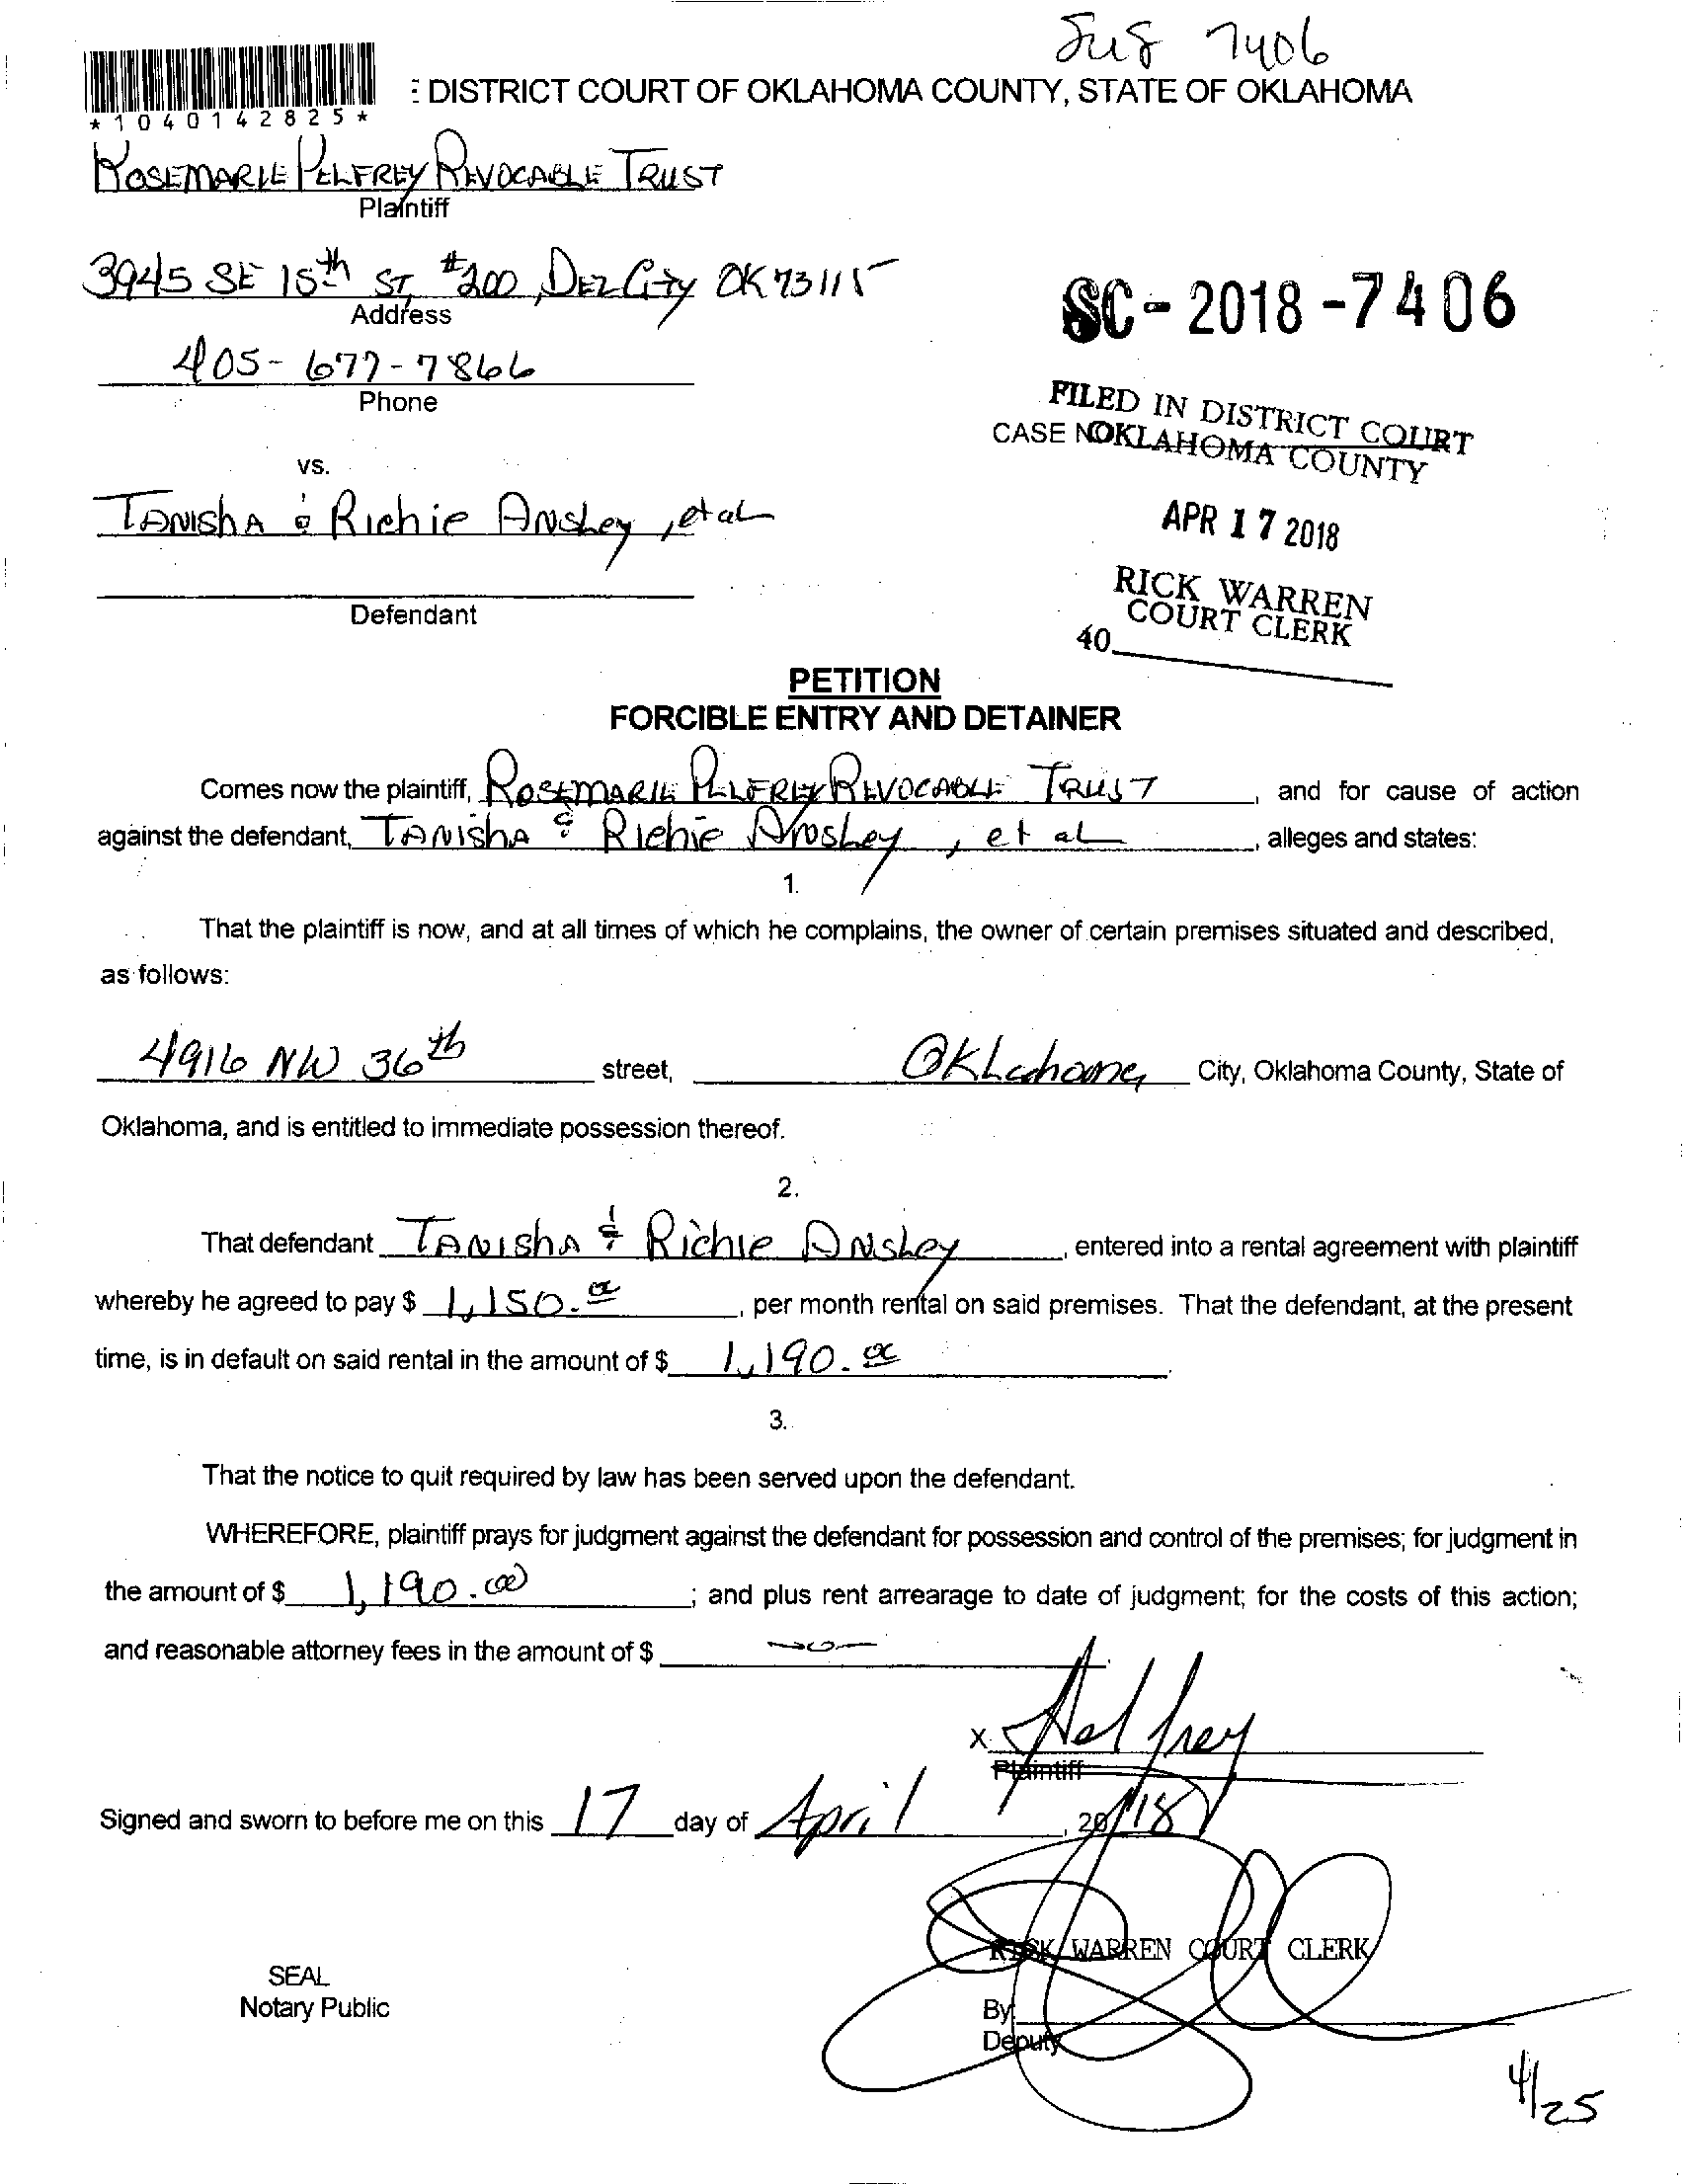 SC 7406
DISTRICT COURT OF OKLAHOMA COUNTY, STATE OF OKLAHOMA
*1040142825*
ROSEMARIE PELFREY REVOCABLE TRUST
Plaintiff
3945 SE 15th ST, #200, DEL City OK 73115
Address
SC-2018-7406
405-677-7866
Phone
FILED IN DISTRICT COURT
CASE NO
OKLAHOMA COUNTY
vs.
TANISHA & Richie Anshey, et al
APR 17 2018
RICK WARREN
COURT CLERK
Defendant
40
PETITION
FORCIBLE ENTRY AND DETAINER
Comes now the plaintiff, ROSEMARIE PELFREY REVOCABLE TRUST, and for cause of action
against the defendant, TANISHA & Richie Anshey, et al, alleges and states:
1.
That the plaintiff is now, and at all times of which he complains, the owner of certain premises situated and described,
as follows:
4916 NW 36th street, Oklahoma City, Oklahoma County, State of
Oklahoma, and is entitled to immediate possession thereof.
2.
That defendant TANISHA & Richie Anshey, entered into a rental agreement with plaintiff
whereby he agreed to pay $ 1,150.00, per month rental on said premises. That the defendant, at the present
time, is in default on said rental in the amount of $ 1,190.00.
3.
That the notice to quit required by law has been served upon the defendant.
WHEREFORE, plaintiff prays for judgment against the defendant for possession and control of the premises; for judgment in
the amount of $ 1,190.00; and plus rent arrearage to date of judgment; for the costs of this action;
and reasonable attorney fees in the amount of $ -0-.
X Pelfrey
Plaintiff
Signed and sworn to before me on this 17 day of April, 2018
RICK WARREN COURT CLERK
SEAL
Notary Public
By
Deputy
4/25